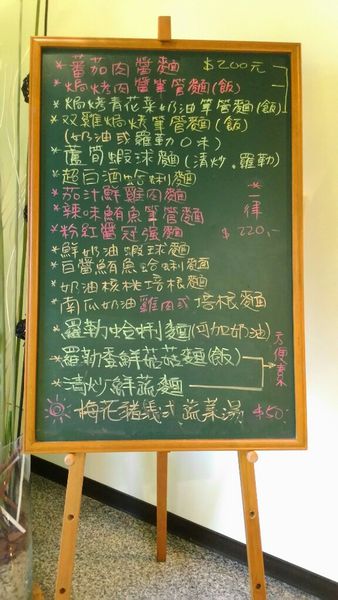 *蕃茄肉醬麵 $200元
*焗烤肉醬筆管麵(飯)
*焗烤青花菜奶油筆管麵(飯)
*双雞焗烤筆管麵(飯)
(奶油或羅勒口味)
*蘆筍蝦球麵(清炒.羅勒)
*超白酒蛤蜊麵
*茄汁鮮雞肉麵
*辣味鮪魚筆管麵
*粉紅醬冠強麵
一律
$220.-
*鮮奶油蝦球麵
*白醬鮪魚蛤蜊麵
*奶油核桃培根麵
*南瓜奶油雞肉或培根麵
*羅勒蛤蜊麵(可加奶油)
*羅勒蛋鮮菇菇麵(飯)
*清炒鮮蔬麵
方便素
梅花豬義式蔬菜湯 $50